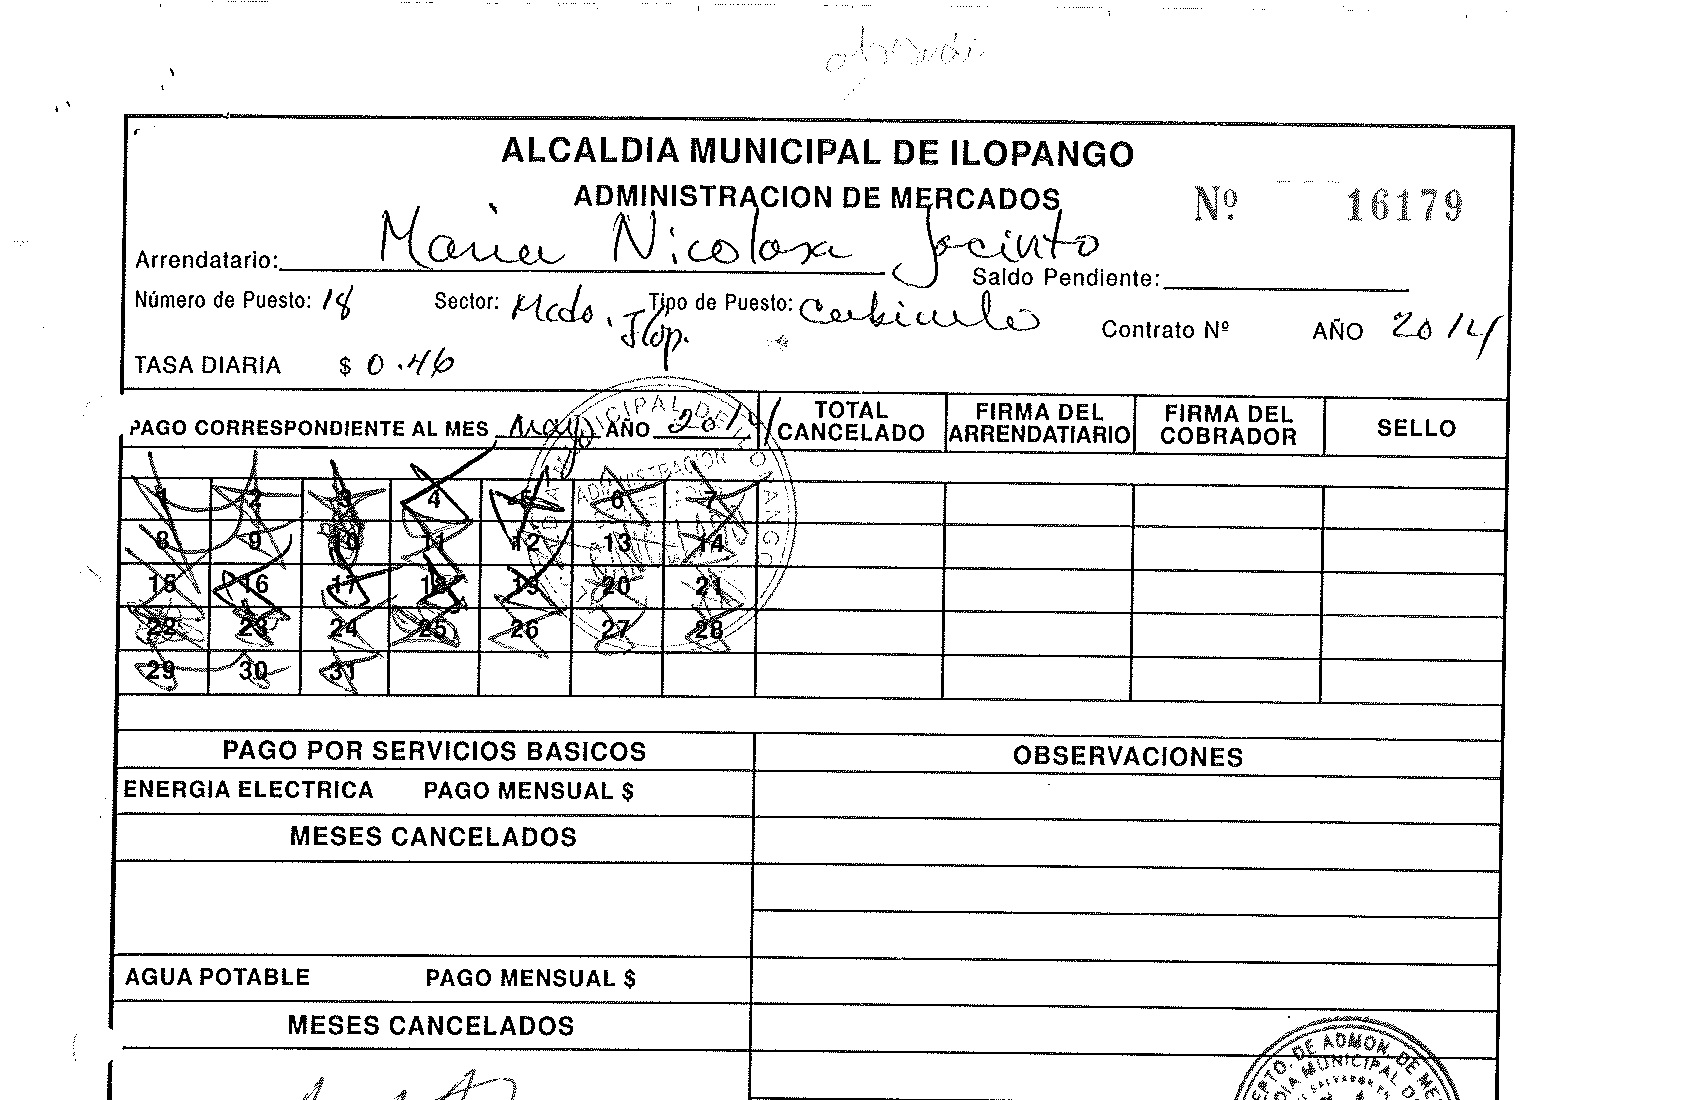 ALCALDIA MUNICIPAL DE ILOPANGO
ADMINISTRACION DE MERCADOS
Nº 16179
Arrendatario: Maria Nicolasa Jacinto
Saldo Pendiente:
Número de Puesto: 18 Sector: Mcdo. Ilop. Tipo de Puesto: Cubiculo
Contrato Nº AÑO 2014
TASA DIARIA $ 0.46
PAGO CORRESPONDIENTE AL MES Mayo AÑO 2014 TOTAL CANCELADO FIRMA DEL ARRENDATIARIO FIRMA DEL COBRADOR SELLO
1 2 3 4 5 6 7
8 9 10 11 12 13 14
15 16 17 18 19 20 21
22 23 24 25 26 27 28
29 30 31
PAGO POR SERVICIOS BASICOS OBSERVACIONES
ENERGIA ELECTRICA PAGO MENSUAL $
MESES CANCELADOS
AGUA POTABLE PAGO MENSUAL $
MESES CANCELADOS